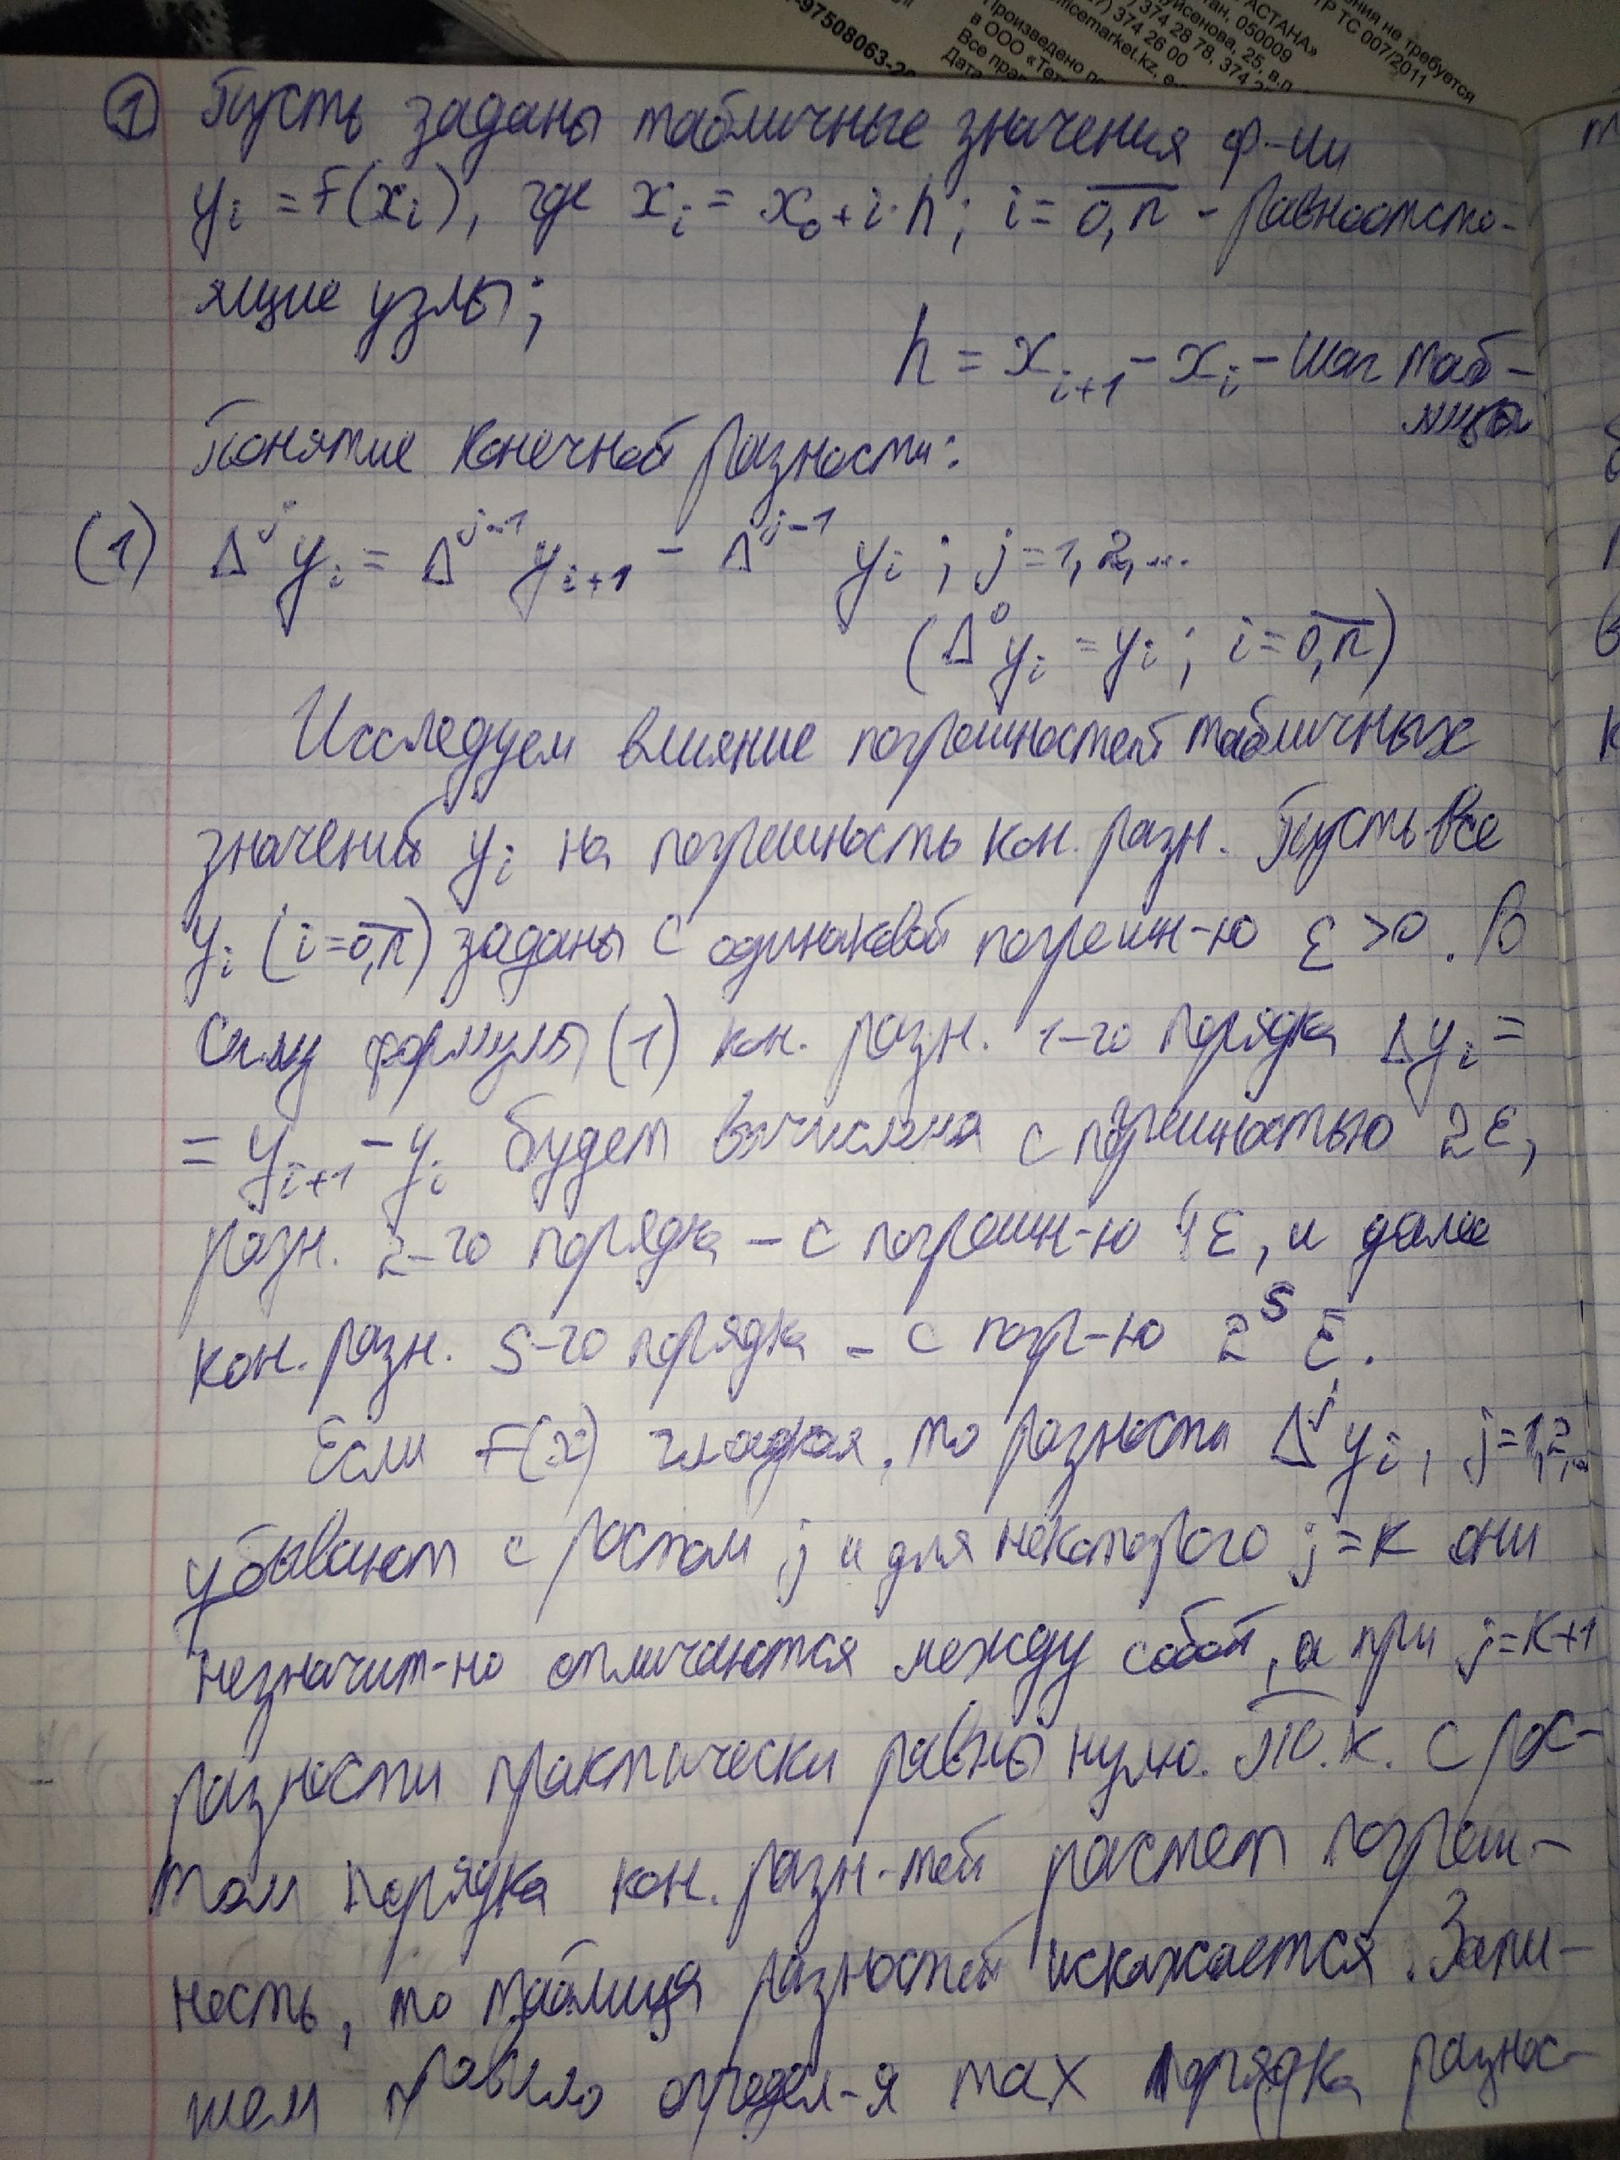 -97508063-2
Произведено
в ООО «Тет
Все пра
Дата
officemarket.kz, e-
7) 374 26 00
374 28 78, 374 2
уйсенова, 25, в.п.
тан, 050009
АСТАНА»
ТР ТС 007/2011
ния не требуется
① Пусть заданы табличные значения ф-ии
yᵢ = f(xᵢ), где xᵢ = x₀ + i·h; i = 0,n - равноотсто-
ящие узлы;
h = xᵢ₊₁ - xᵢ - шаг таб-
лицы
Понятие конечной разности:
(1) Δʲyᵢ = Δʲ⁻¹yᵢ₊₁ - Δʲ⁻¹yᵢ; j = 1, 2, ...
(Δ⁰yᵢ = yᵢ; i = 0,n)
Исследуем влияние погрешностей табличных
значений yᵢ на погрешность кон. разн. Пусть все
yᵢ (i = 0,n) заданы с одинаковой погрешн-ю ε > 0. В
силу формулы (1) кон. разн. 1-го порядка Δyᵢ =
= yᵢ₊₁ - yᵢ будет вычислена с погрешностью 2ε,
разн. 2-го порядка - с погрешн-ю 4ε, и далее
кон. разн. s-го порядка - с погр-ю 2ˢ ε.
Если f(x) гладкая, то разности Δʲyᵢ, j = 1,2,..
убывают с ростом j и для некоторого j = k они
незначит-но отличаются между собой, а при j = k+1
разности практически равны нулю. Т.к. с рос-
том порядка кон. разн-тей растет погреш-
ность, то таблица разностей искажается. Запи-
шем правило определ-я max порядка разнос-